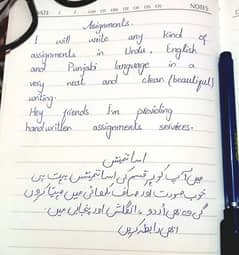 DATE
NOTES
Assignments.
I will write any kind of
assignments in Urdu, English
and Punjabi language in a
very neat and clean (beautiful)
writing.
Hey friends I'm providing
handwritten assignments services.
اسائنمنٹس
میں آپ کو ہر قسم کی اسائنمنٹس بہت ہی
خوب صورت اور صاف لکھائی میں مہیا کروں
گی وہ بھی اُردو، انگلش اور پنجابی میں۔
ابھی رابطہ کریں